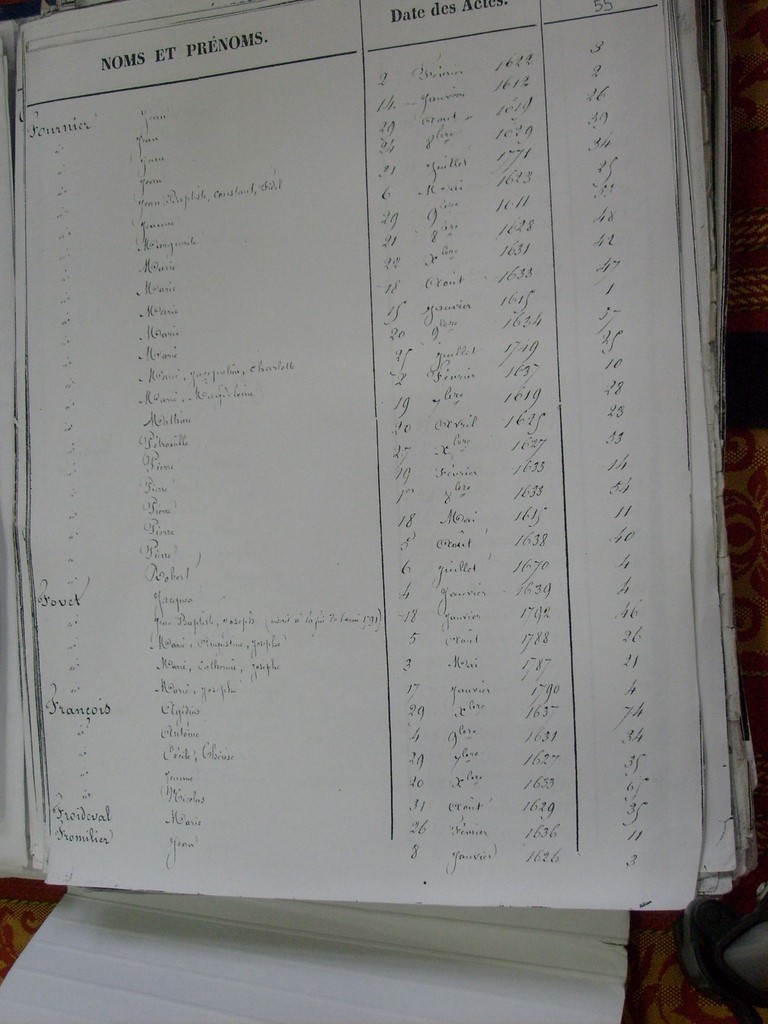 NOMS ET PRÉNOMS. Date des Actes. 55
Fournier Jean 2 Février 1622 3
id Jean 14 Janvier 1612 2
id Jean 29 Août 1619 26
id Jean 24 8bre 1629 39
id Jean Baptiste, Constant, Fidel 21 Juillet 1771 34
id Jeanne 6 Mai 1623 25
id Marguerite 29 9bre 1611 33
id Marie 21 8bre 1628 48
id Marie 22 Xbre 1631 42
id Marie 18 Août 1633 47
id Marie 15 Janvier 1615 1
id Marie 20 9bre 1634 57
id Marie, Jacqueline, Charlotte 25 Juillet 1749 25
id Marie, Magdeleine 2 Février 1637 10
id Mathieu 19 7bre 1619 28
id Pétronille 20 Avril 1625 23
id Pierre 27 Xbre 1627 53
id Pierre 19 Février 1633 14
id Pierre 1er 8bre 1633 54
id Pierre 18 Mai 1615 11
id Pierre 5 Août 1638 40
id Robert 6 Juillet 1670 4
Fovet Jacques 4 Janvier 1639 4
id Jean Baptiste, Joseph (omis à la fin de l'année 1791) 12 Janvier 1792 46
id Marie, Augustine, Josephe 5 Août 1788 26
id Marie, Catherine, Josephe 3 Mai 1787 21
id Marie, Josephe 17 Janvier 1790 4
François Egidius 29 Xbre 1637 74
id Antoine 4 9bre 1631 34
id Cécile, Thérèse 29 7bre 1627 35
id Jeanne 20 Xbre 1633 65
id Nicolas 31 Août 1629 35
Froideval Marie 26 Février 1636 11
Fromilier Jean 8 Janvier 1626 3